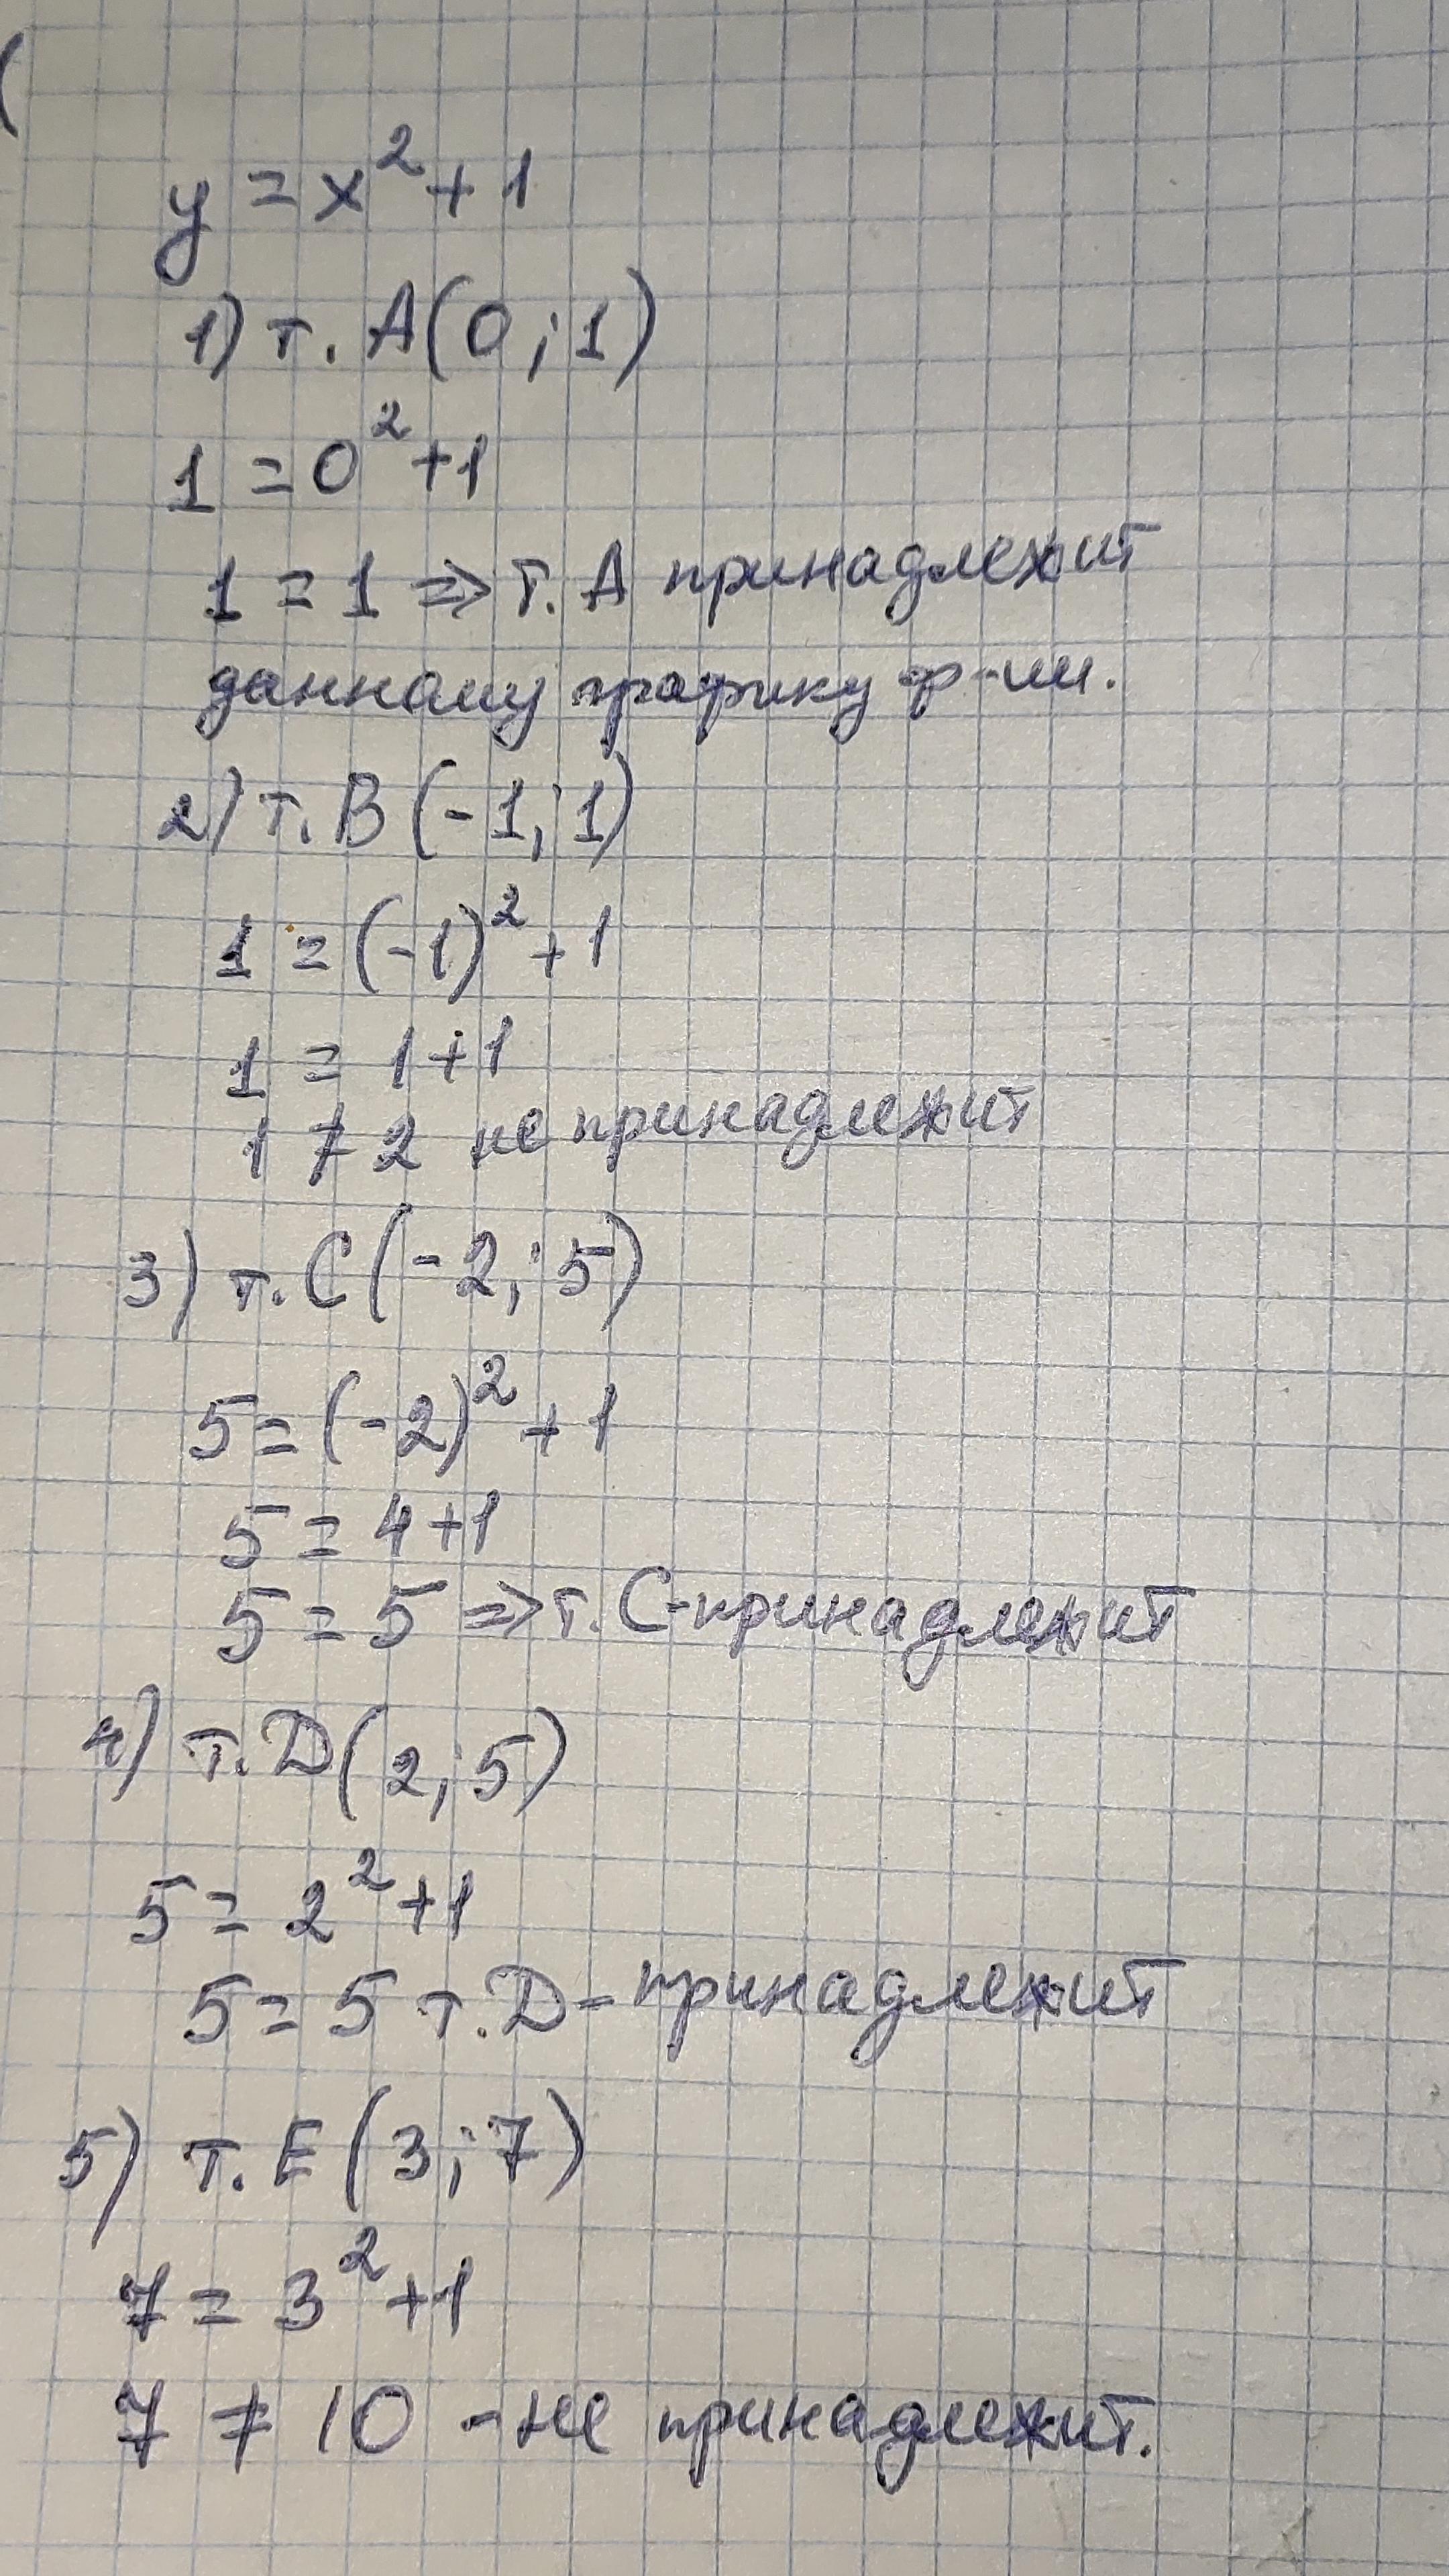 y = x² + 1
1) т. A(0; 1)
1 = 0² + 1
1 = 1 => т. A принадлежит
данному графику ф-ии.
2) т. B(-1; 1)
1 = (-1)² + 1
1 = 1 + 1
1 ≠ 2 не принадлежит
3) т. C(-2; 5)
5 = (-2)² + 1
5 = 4 + 1
5 = 5 => т. C-принадлежит
4) т. D(2; 5)
5 = 2² + 1
5 = 5 т. D-принадлежит
5) т. E(3; 7)
7 = 3² + 1
7 ≠ 10 - не принадлежит.